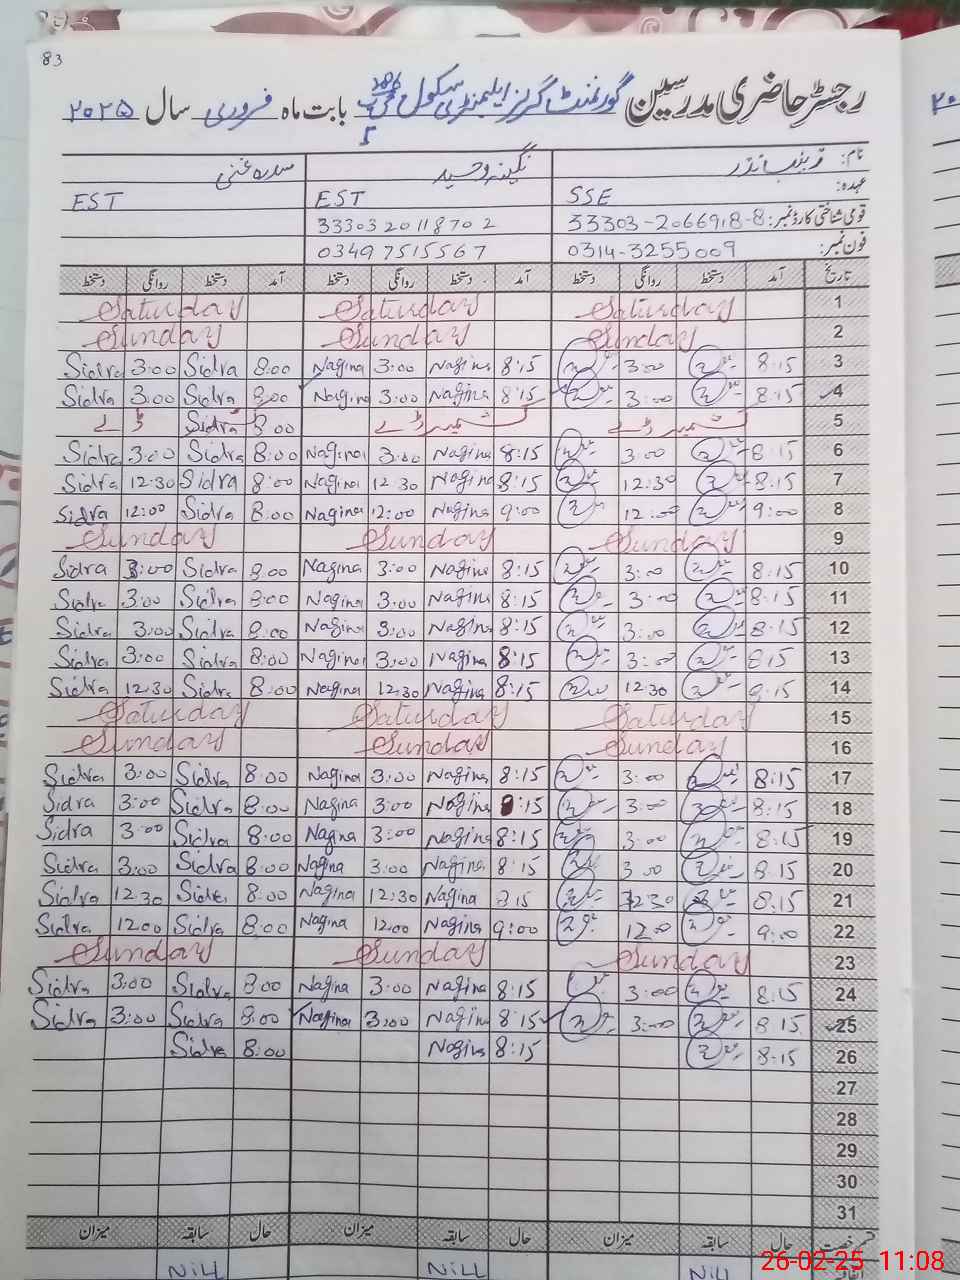 83
رجسٹر حاضری مدرسین گورنمنٹ گرلز ایلیمنٹری سکول بابت ماہ فروری سال ۲۰۲۵
نام: نگینہ وحید سدرہ غنی
عہدہ: SSE EST EST
قومی شناختی کارڈ نمبر: 33303-2066918-8 33303 20118702
فون نمبر: 0314-3255009 03497515567
تاریخ آمد دستخط روانگی دستخط آمد دستخط روانگی دستخط آمد دستخط روانگی دستخط
1 Saturday Saturday Saturday
2 Sunday Sunday Sunday
3 8:15 3:00 8:15 Nagina 3:00 Nagina 8:00 Sidra 3:00 Sidra
4 8:15 3:00 8:15 Nagina 3:00 Nagina 8:00 Sidra 3:00 Sidra
5 کشمیر ڈے کشمیر ڈے 8:00 Sidra ڈے
6 8:15 3:00 8:15 Nagina 3:00 Nagina 8:00 Sidra 3:00 Sidra
7 8:15 12:30 8:15 Nagina 12:30 Nagina 8:00 Sidra 12:30 Sidra
8 9:00 12:00 9:00 Nagina 12:00 Nagina 8:00 Sidra 12:00 Sidra
9 Sunday Sunday Sunday
10 8:15 3:00 8:15 Nagina 3:00 Nagina 8:00 Sidra 3:00 Sidra
11 8:15 3:00 8:15 Nagina 3:00 Nagina 8:00 Sidra 3:00 Sidra
12 8:15 3:00 8:15 Nagina 3:00 Nagina 8:00 Sidra 3:00 Sidra
13 8:15 3:00 8:15 Nagina 3:00 Nagina 8:00 Sidra 3:00 Sidra
14 8:15 12:30 8:15 Nagina 12:30 Nagina 8:00 Sidra 12:30 Sidra
15 Saturday Saturday Saturday
16 Sunday Sunday Sunday
17 8:15 3:00 8:15 Nagina 3:00 Nagina 8:00 Sidra 3:00 Sidra
18 8:15 3:00 8:15 Nagina 3:00 Nagina 8:00 Sidra 3:00 Sidra
19 8:15 3:00 8:15 Nagina 3:00 Nagna 8:00 Sidra 3:00 Sidra
20 8:15 3:00 8:15 Nagina 3:00 Nagina 8:00 Sidra 3:00 Sidra
21 8:15 12:30 8:15 Nagina 12:30 Nagina 8:00 Sidra 12:30 Sidra
22 9:00 12:00 9:00 Nagina 12:00 Nagina 8:00 Sidra 12:00 Sidra
23 Sunday Sunday Sunday
24 8:15 3:00 8:15 Nagina 3:00 Nagina 8:00 Sidra 3:00 Sidra
25 8:15 3:00 8:15 Nagina 3:00 Nagina 8:00 Sidra 3:00 Sidra
26 8:15 8:15 Nagina 8:00 Sidra
27
28
29
30
31
قسم رخصت حال سابقہ میزان حال سابقہ میزان حال سابقہ میزان
Nill Nill Nill
26-02-25 11:08